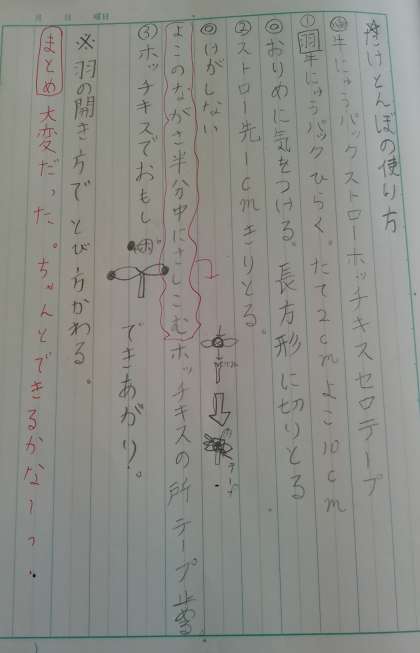 月　日　曜日
※たけとんぼの使り方
牛にゅうパックストローホッチキスセロテープ
①羽牛にゅうパックひらく。たて2cmよこ10cm
◎おりめに気をつける。長方形に切りとる
②ストロー先1cmきりとる。
◎けがしない
よこのながさ半分中にさしこむホッチキスの所テープ止める
③ホッチキスでおもし
できあがり。
※羽の開き方でとび方かわる。
まとめ大変だった。ちゃんとできるかなーっ。